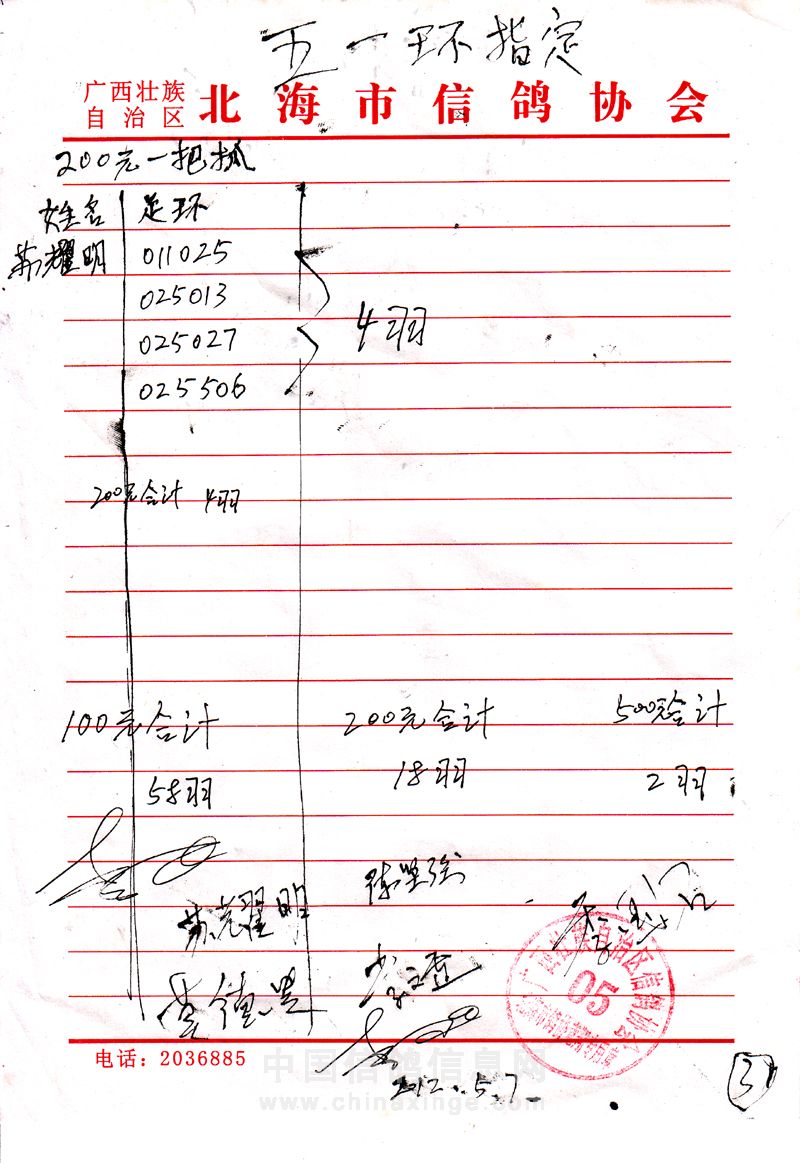 五一环指定
广西壮族自治区 北海市信鸽协会
200元一把抓
姓名 足环
苏耀明 011025
025013
025027
025506
4羽
200元合计 4羽
100元合计 200元合计 500元合计
58羽 18羽 2羽
苏耀明 陈坚强
广西壮族自治区信鸽协会
05
电话：2036885
中国信鸽信息网
www.chinaxinge.com
2012.5.7
3